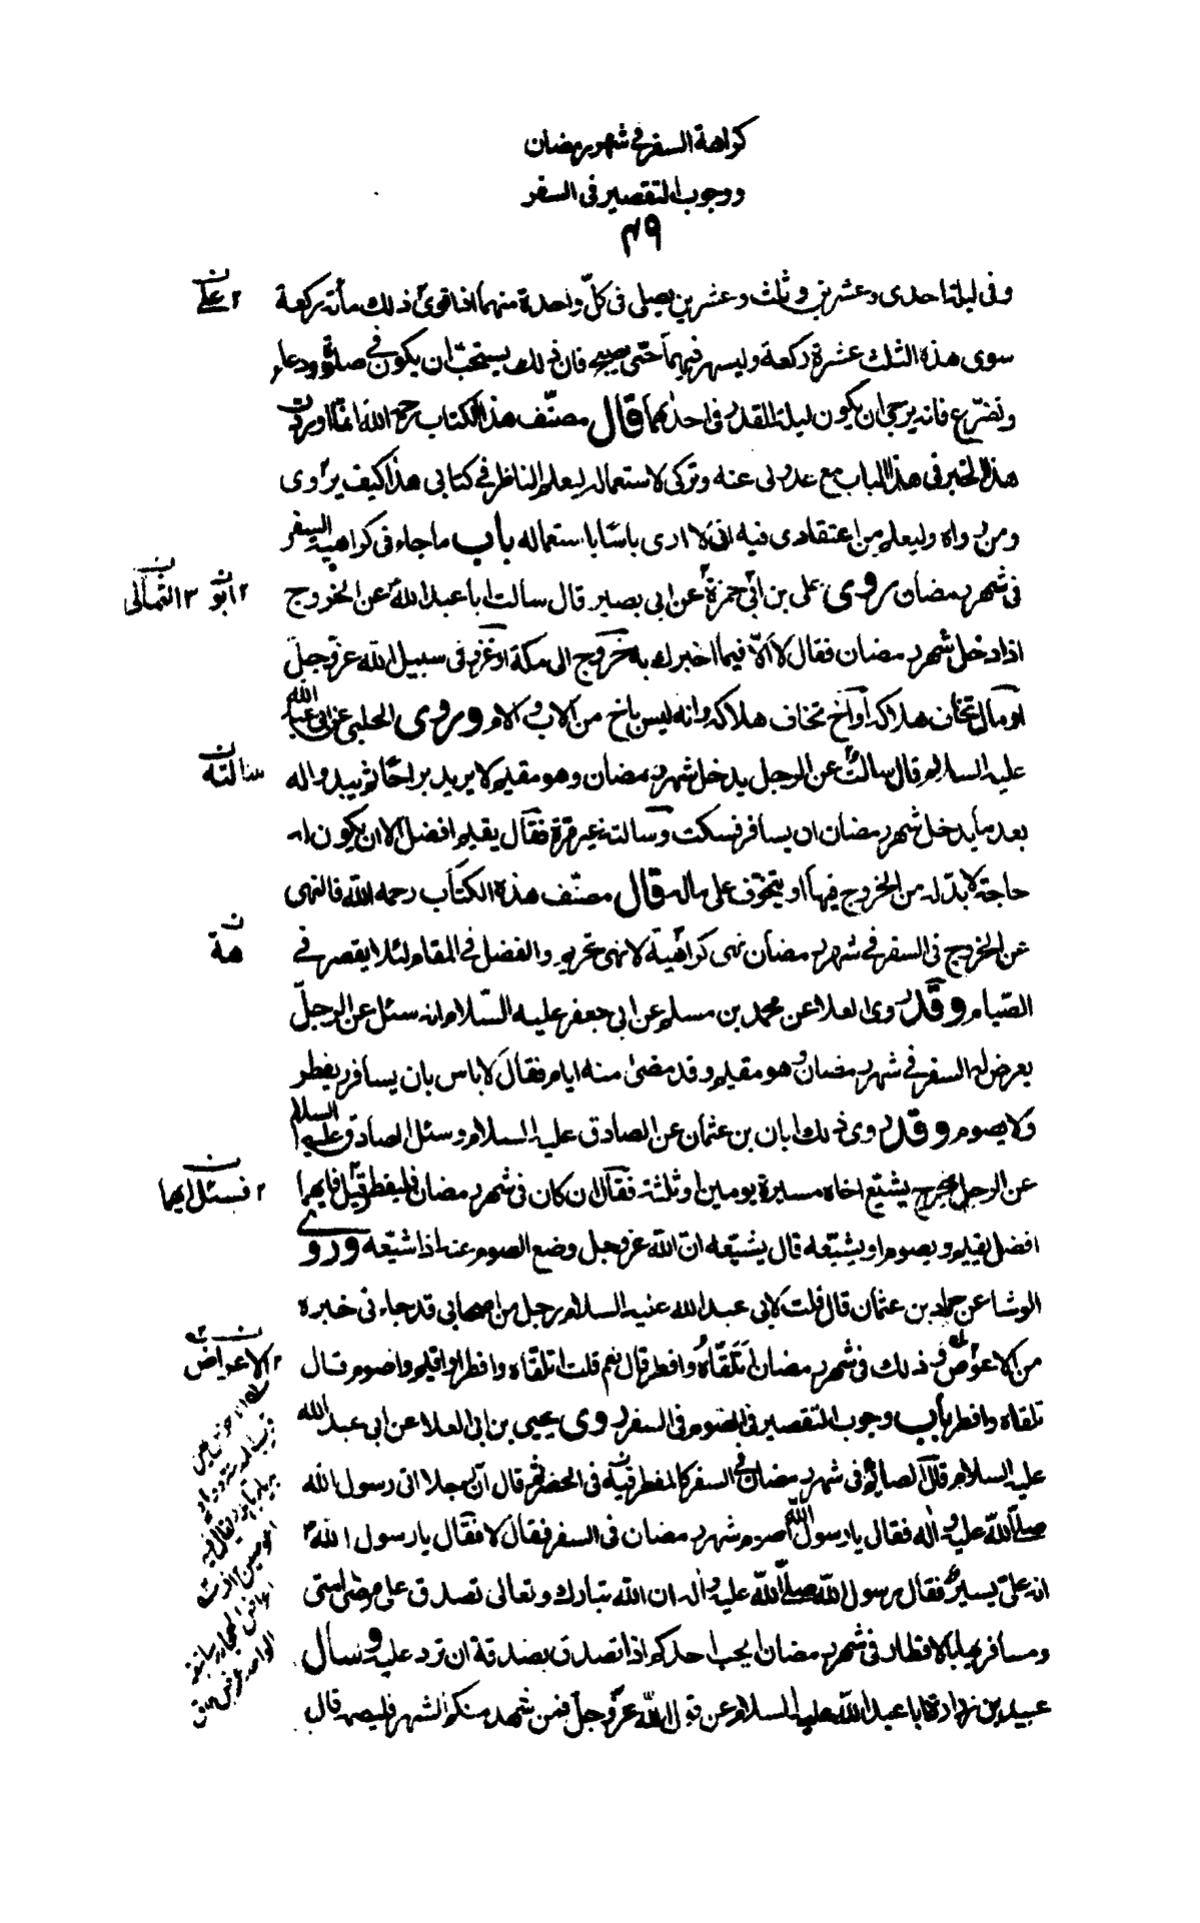 كراهة السفر في شهر رمضان
ووجوب التقصير في السفر
٤٩
وفى ليلة احدى وعشرين وثلث وعشرين يصلى فى كلّ واحدة منهما اذا قوى ذلك مأة ركعة
سوى هذه الثلث عشرة ركعة وليسهر فيهما حتى يصبح فان ذلك يستحب ان يكون في صلوة ودعاء
وتضرّع فانه يرجى ان يكون ليلة القدر فى احدٰهما قال مصنّف هذا الكتاب رحمه الله انما اوردت
هذا الخبر فى هذا الباب مع عدولى عنه وتركى لاستعماله ليعلم الناظر في كتابى هذا كيف يروى
ومن رواه وليعلم من اعتقادى فيه انى لا ارى باسًا باستعماله باب ما جاء فى كراهية السفر
فى شهر رمضان روى على بن ابى حمزة عن ابى بصير قال سالت ابا عبد الله ع عن الخروج
اذا دخل شهر رمضان فقال لا الّا فيما اخبرك به خروج الى مكة او غزو فى سبيل الله عز وجل
او مال تخاف هلاكه او اخ تخاف هلاكه وانه ليس باخ من الاب والام وروى الحلبى عن ابى عبد الله
عليه السلام قال سالت عن الرجل يدخل شهر رمضان وهو مقيم لا يريد براحًا ثم يبدو له
بعد ما يدخل شهر رمضان ان يسافر فسكت وسالته غير مرة فقال يقيم افضل الا ان يكون له
حاجة لا بدّ له من الخروج فيها او يتخوّف على ماله قال مصنّف هذا الكتاب رحمه الله فالنهى
عن الخروج فى السفر في شهر رمضان نهى كراهية لا نهى تحريم والفضل في المقام لئلا يقصر في
الصّيام وقد روى العلا عن محمد بن مسلم عن ابى جعفر عليه السّلام انه سئل عن الرجل
يعرض له السفر في شهر رمضان وهو مقيم وقد مضى منه ايام فقال لا باس بان يسافر ويفطر
ولا يصوم وقد روى ذلك ابان بن عثمان عن الصادق عليه السلام وسئل الصادق عليه السلام
عن الرجل يخرج يشيّع اخاه مسيرة يومين او ثلثة فقال ان كان فى شهر رمضان فليفطر قيل فايهما
افضل يقيم ويصوم او يشيّعه قال يشيّعه انّ الله عز وجل وضع الصوم عنه اذا شيّعه وروى
الوشا عن حماد بن عثمان قال قلت لابى عبد الله عليه السلام رجل من اصحابى قد جاء نى خبره
من الاعوص و ذلك فى شهر رمضان اتلقّاه وافطر قال نعم قلت اتلقاه وافطر او اقيم واصوم قال
تلقاه وافطر باب وجوب التقصير فى الصوم فى السفر روى يحيى بن ابى العلا عن ابى عبد الله
عليه السلام قال الصائم فى شهر رمضان في السفر كالمفطر فيه فى الحضر ثم قال ان رجلا اتى رسول الله
صلى الله عليه واله فقال يا رسول الله اصوم شهر رمضان فى السفر فقال لا فقال يا رسول الله
انه علىّ يسير فقال رسول الله صلى الله عليه واله ان الله تبارك وتعالى تصدق على مرضى امتى
ومسافريها بالافطار فى شهر رمضان ايحب احدكم اذا تصدق بصدقة ان ترد عليه وسال
عبيد بن زرارة ابا عبد الله عليه السلام عن قول الله عزّ وجلّ فمن شهد منكم الشهر فليصمه قال
٢ على
٢ ابو ٣ الثمالى
سالته
هة
٢ فسئل ايهما
٢ الاعراض